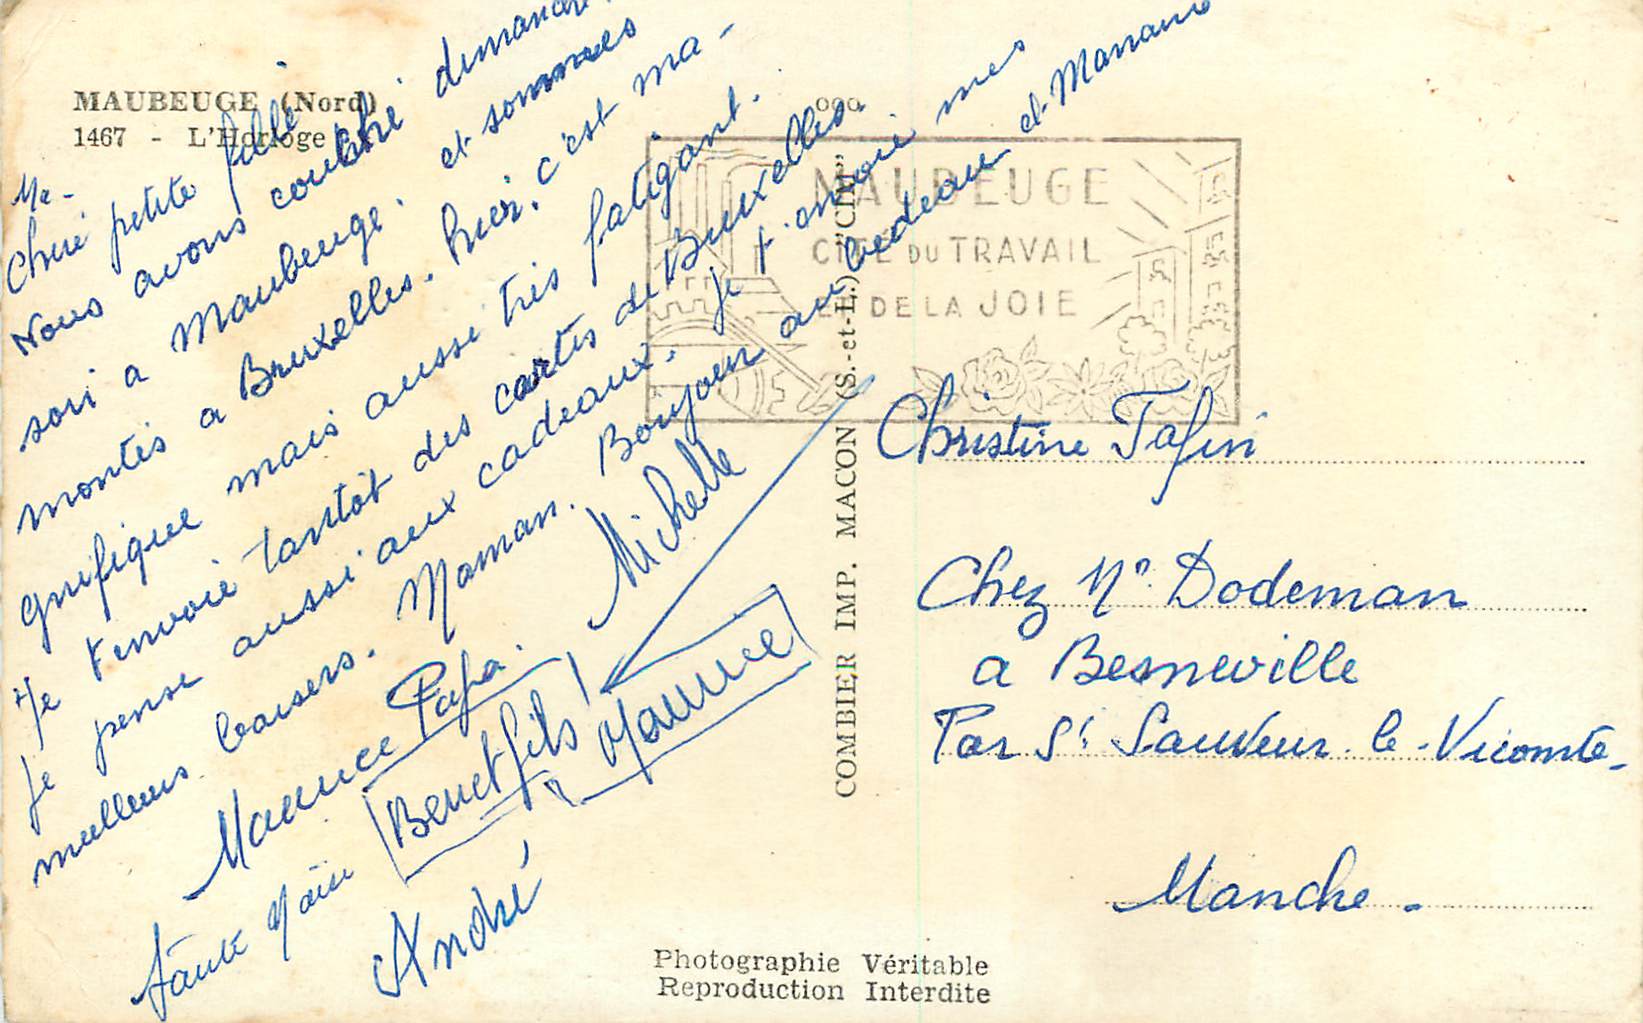 MAUBEUGE (Nord)
1467 - L'Horloge
Me-
Cheri petite fille
Nous avons couché dimanche
soir a Maubeuge. et sommes
montés a Bruxelles. hier. c'est ma-
gnifique mais aussi très fatigant.
Je t'envoie tantôt des cartes de Bruxelles.
Je pense aussi aux cadeaux. Je t'envoie mes
meilleurs baisers. Maman. Bonjour au bedeau et Manami
Maurice Papa. Michelle
tante
Benet fils
Maurice
André
MAUBEUGE
CITÉ DU TRAVAIL
ET DE LA JOIE
COMBIER IMP. MACON (S.-et-L.) "CIM"
Christine Tafin
Chez Mr Dodeman
a Besneville
Par St Sauveur le-Vicomte-
Manche -
Photographie Véritable
Reproduction Interdite